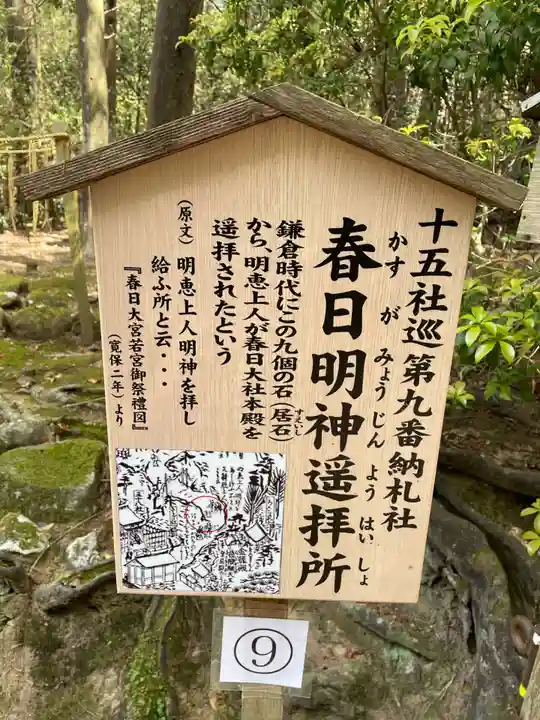 十五社巡 第九番納札社
春日明神遥拝所
かす が みょう じん よう はい しょ
鎌倉時代にこの九個の石(居石)
すえいし
から、明恵上人が春日大社本殿を
遥拝されたという
(原文) 明恵上人明神を拝し
給ふ所と云・・・
『春日大宮若宮御祭禮図』
(寛保二年)より
⑨